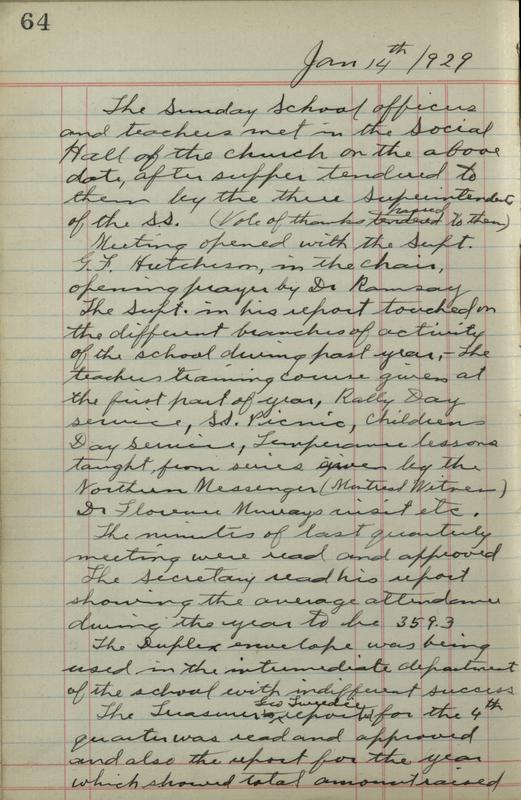 64
Jan 14th 1929
The Sunday School officers
and teachers met in the Social
Hall of the church on the above
date, after supper tendered to
them by the three Superintendents
of the SS. (Vote of thanks tendered to them)
Meeting opened with the Supt.
G. F. Hutcheson, in the chair,
opening prayer by Dr Ramsay
The Supt. in his report touched on
the different branches of activity
of the school during past year, - The
teachers training course given at
the first part of year, Rally Day
service, SS. Picnic, Childrens
Day Service, Temperance lessons
taught from series given by the
Northern Messenger (Montreal Witness)
Dr Florence Murrays visit etc.
The minutes of last quarterly
meeting were read and approved
The Secretary read his report
showing the average attendance
during the year to be 359.3
The Duplex envelope was being
used in the intermediate department
of the school with indifferent success
Geo Tweedie
The Treasurers report for the 4th
quarter was read and approved
and also the report for the year
which showed total amount raised